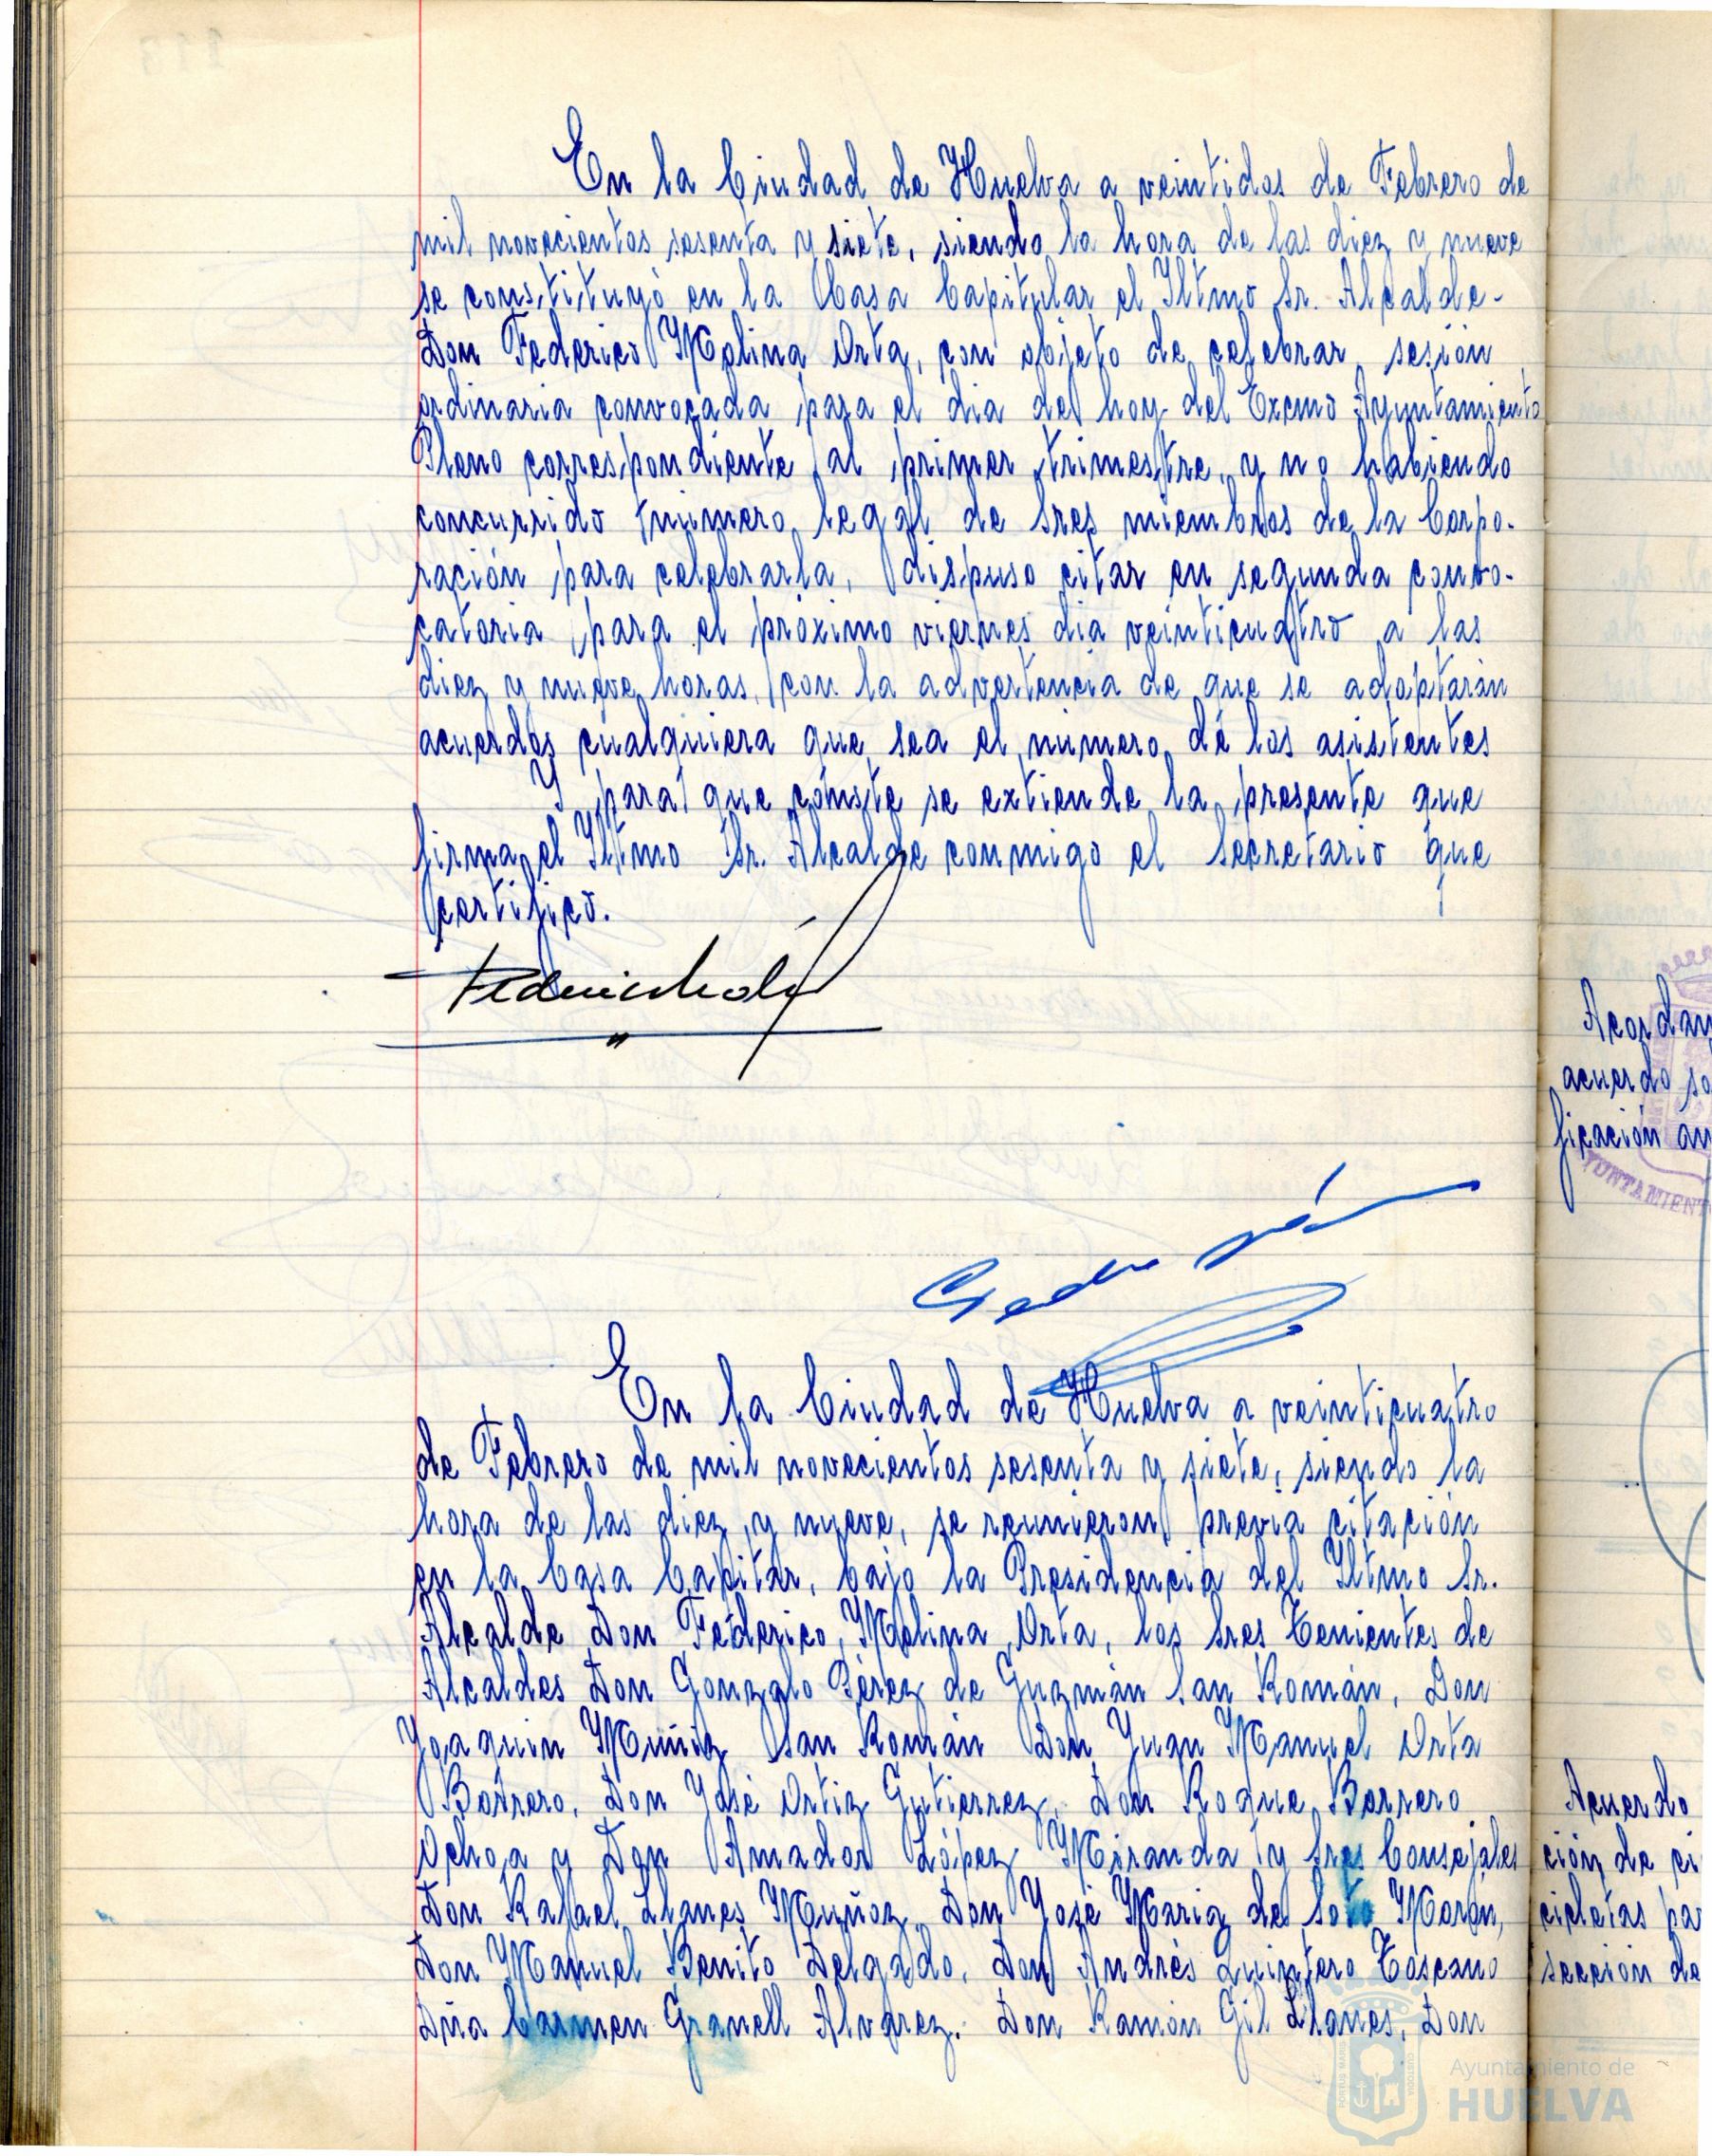 En la Ciudad de Huelva a veintidos de Febrero de
mil novecientos sesenta y siete, siendo la hora de las diez y nueve
se constituyó en la Casa Capitular el Iltmo Sr. Alcalde-
Don Federico Molina Orta, con objeto de celebrar sesión
ordinaria convocada para el dia de hoy del Excmo Ayuntamiento
Pleno correspondiente al primer trimestre, y no habiendo
concurrido número legal de Sres miembros de la Corpo-
ración para celebrarla, dispuso citar en segunda convo-
catoria para el próximo viernes dia veinticuatro a las
diez y nueve horas, con la advertencia de que se adoptarán
acuerdos cualquiera que sea el número de los asistentes
Y para que conste se extiende la presente que
firma el Iltmo Sr. Alcalde conmigo el Secretario que
certifico.
En la Ciudad de Huelva a veinticuatro
de Febrero de mil novecientos sesenta y siete, siendo la
hora de las diez y nueve, se reunieron previa citación
en la Casa Capitar, bajo la Presidencia del Iltmo Sr.
Alcalde Don Federico Molina Orta, los Sres Tenientes de
Alcaldes Don Gonzalo Pérez de Guzmán San Román, Don
Joaquin Muñiz San Román Don Juan Manuel Orta
Borrero, Don José Ortiz Gutierrez, Don Roque Borrero
Ochoa y Don Amador López Miranda y Sres Consejales
Don Rafael Llanes Muñoz, Don José Maria de Soto Morón,
Don Manuel Benito Delgado, Don Andrés Quintero Toscano
Dña Carmen Granell Alvarez. Don Ramón Gil Llanes, Don
Acordan
acuerdo so
ficación an
YUNTAMIENT
Acuerdo
ción de ci
cicletas pa
sección de
Ayuntamiento de
HUELVA